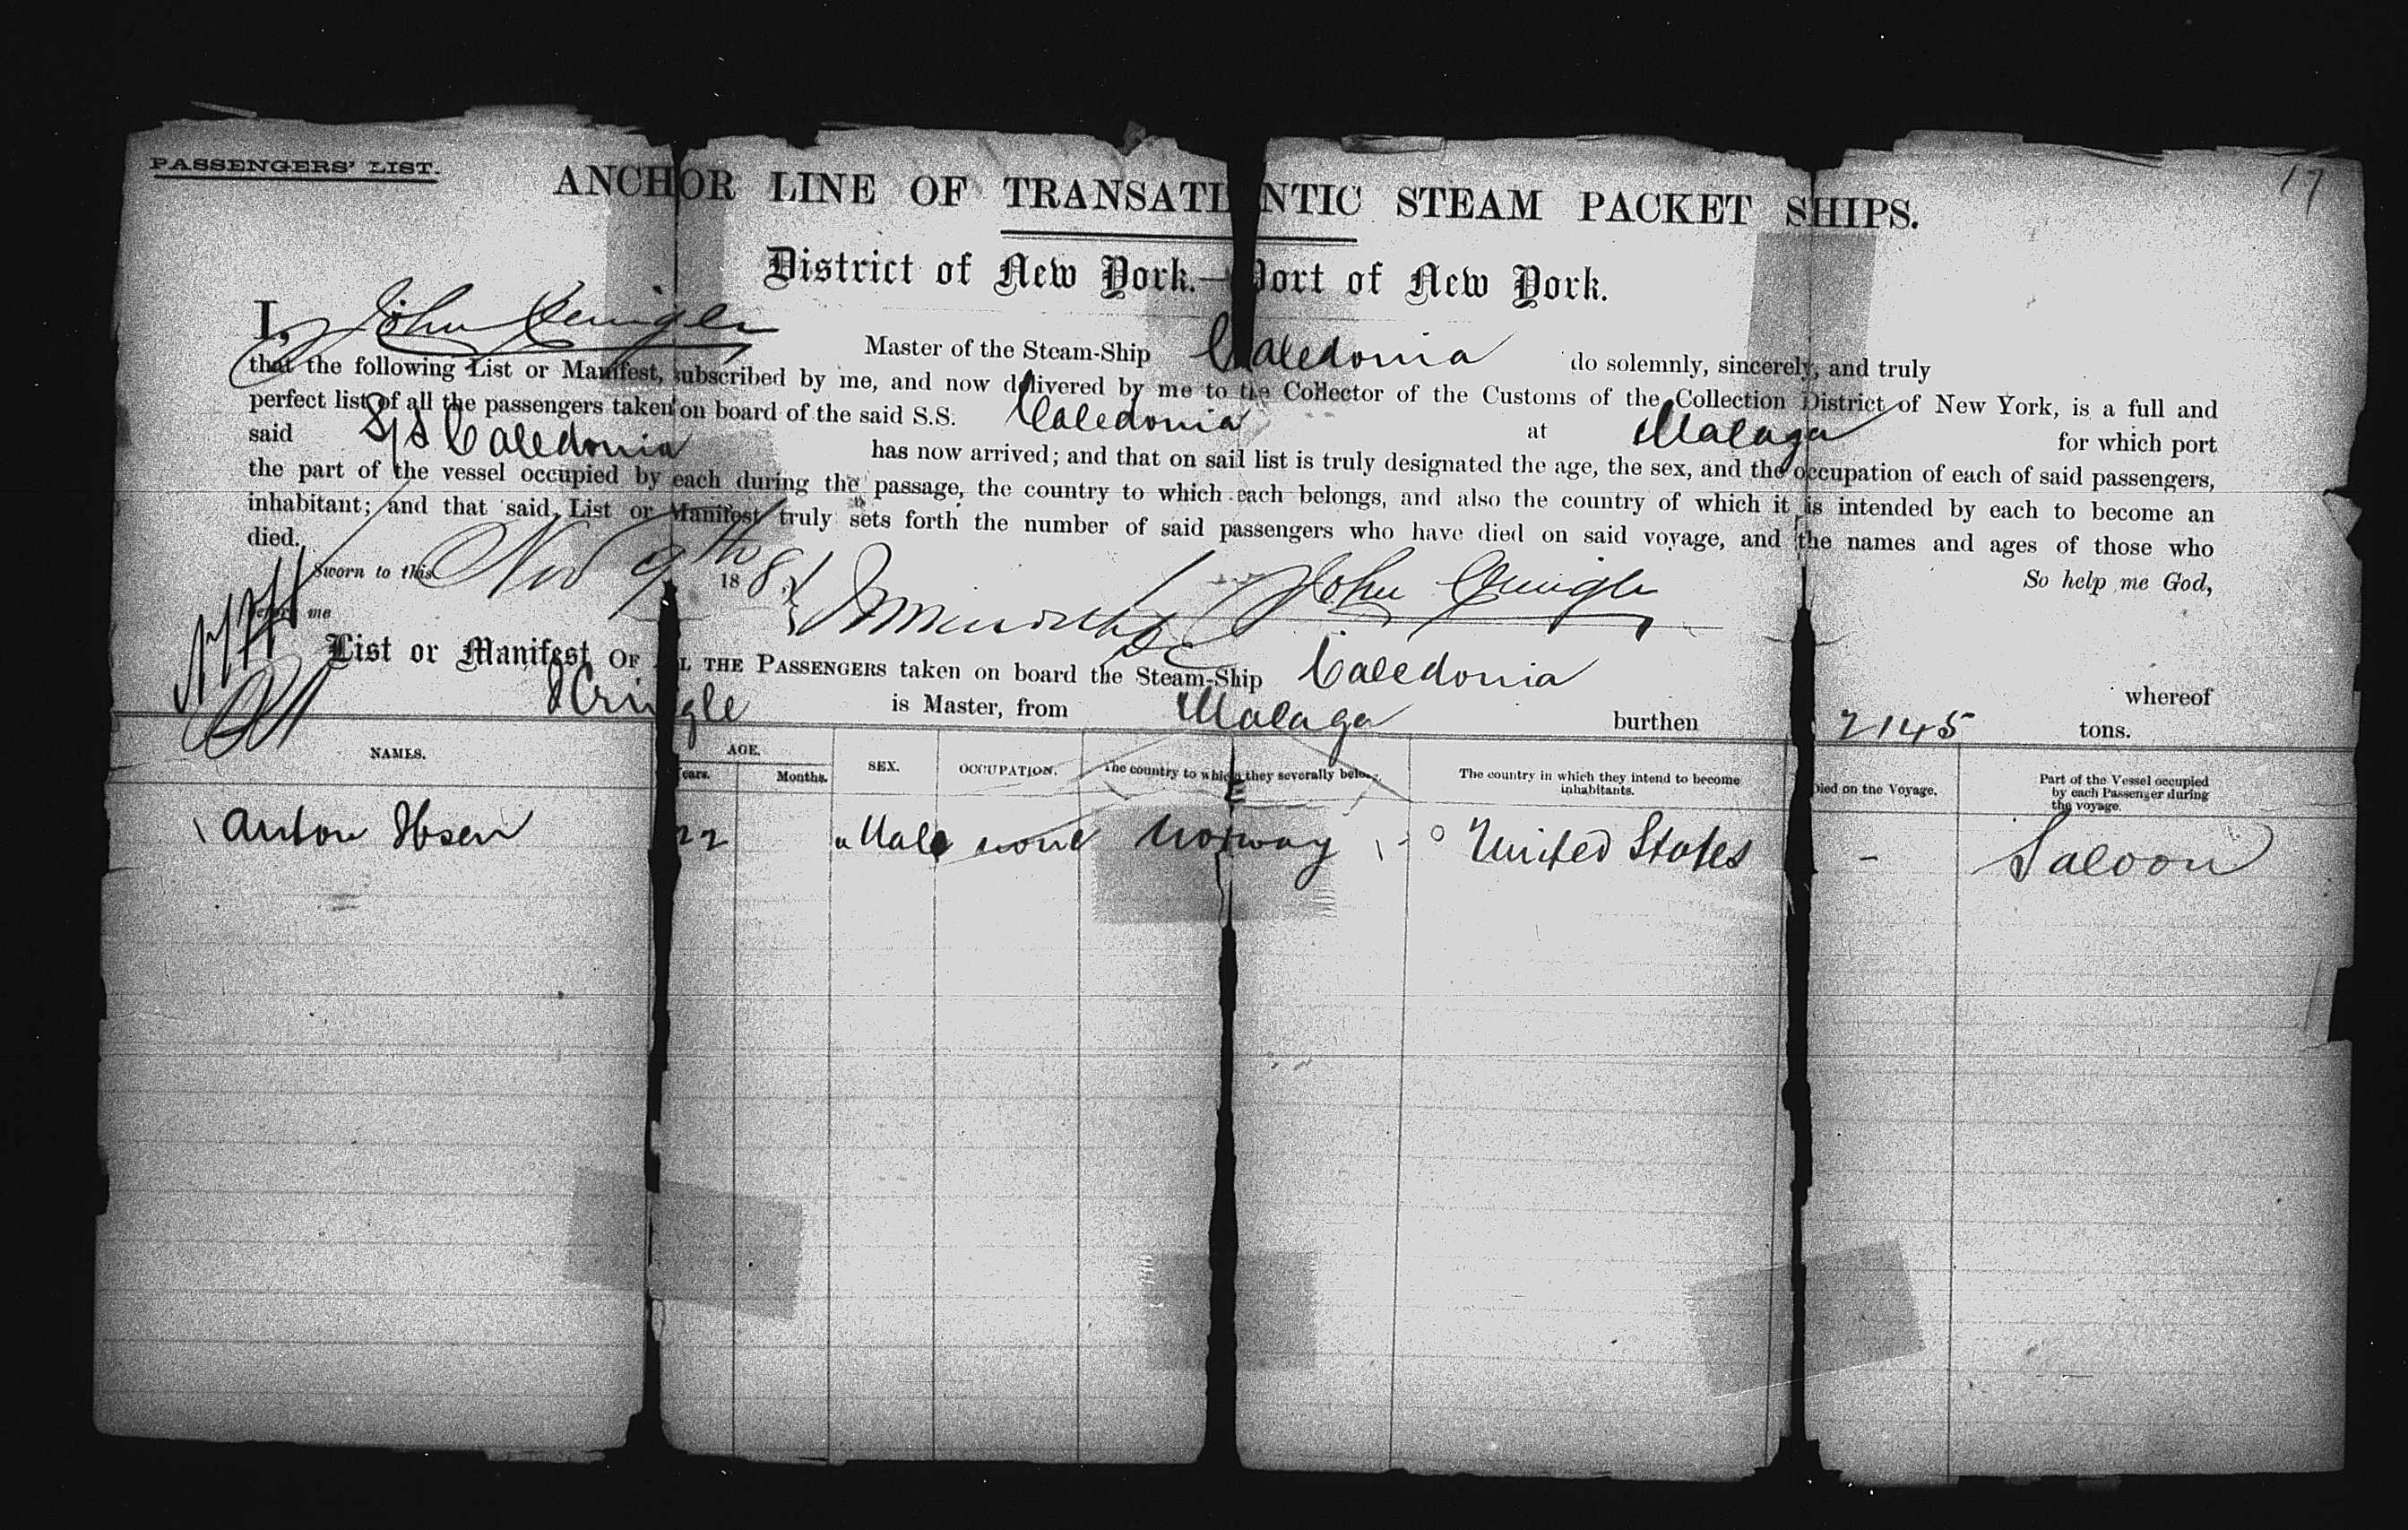 17
PASSENGERS' LIST.
ANCHOR LINE OF TRANSATLANTIC STEAM PACKET SHIPS.
District of New York.—Port of New York.
I, John
Master of the Steam-Ship Caledonia do solemnly, sincerely, and truly
that the following List or Manifest, subscribed by me, and now delivered by me to the Collector of the Customs of the Collection District of New York, is a full and
perfect list of all the passengers taken on board of the said S.S. Caledonia at Malaga for which port
said S/S Caledonia has now arrived; and that on said list is truly designated the age, the sex, and the occupation of each of said passengers,
the part of the vessel occupied by each during the passage, the country to which each belongs, and also the country of which it is intended by each to become an
inhabitant; and that said List or Manifest truly sets forth the number of said passengers who have died on said voyage, and the names and ages of those who
died.
So help me God,
Sworn to this Nov 9th 188
John
before me
List or Manifest OF ALL THE PASSENGERS taken on board the Steam-Ship Caledonia whereof
is Master, from Malaga burthen 2145 tons.
NAMES. AGE. Years. Months. SEX. OCCUPATION. The country to which they severally belong. The country in which they intend to become inhabitants. Died on the Voyage. Part of the Vessel occupied by each Passenger during the voyage.
Anton Ibsen 22 Male none Norway United States - Saloon